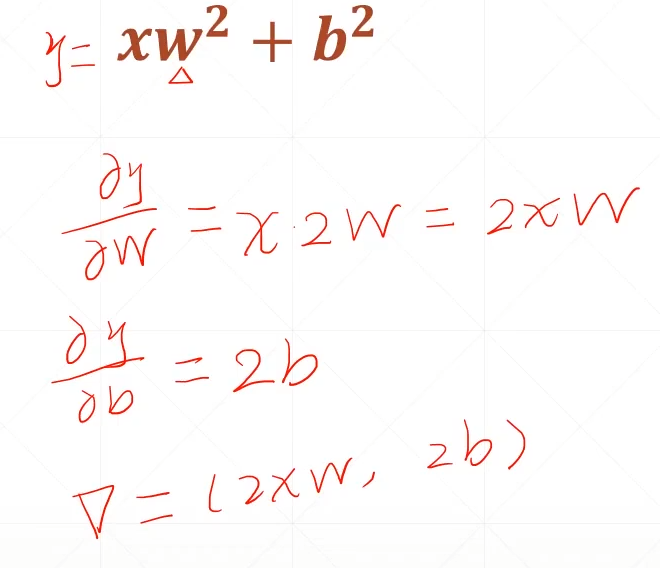 y = xw² + b²
∂y/∂w = x · 2w = 2xw
∂y/∂b = 2b
∇ = (2xw, 2b)